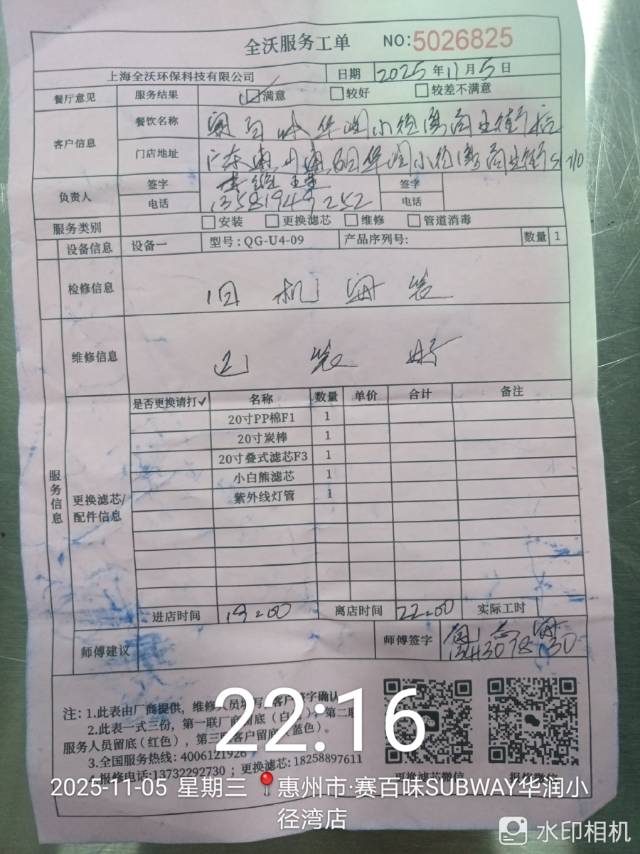 全沃服务工单 NO:5026825
上海全沃环保科技有限公司 日期 2025年11月5日
餐厅意见 服务结果 满意 较好 较差不满意
客户信息 餐饮名称
门店地址
负责人 签字 签字
电话 电话
服务类别 安装 更换滤芯 维修 管道消毒
设备信息 设备一 型号：QG-U4-09 产品序列号: 数量 1
检修信息 旧机
维修信息 已装好
服务信息 更换滤芯/配件信息
是否更换请打✓ 名称 数量 单价 合计 备注
20寸PP棉F1 1
20寸炭棒 1
20寸叠式滤芯F3 1
小白熊滤芯 1
紫外线灯管 1
进店时间 19:00 离店时间 22:00 实际工时
师傅建议 师傅签字
注：1.此表由厂商提供，维修人员填写，客户签字确认
2.此表一式三份，第一联厂商留底（白），第二联
服务人员留底(红色)，第三联客户留底（蓝色）。
3.全国服务热线：4006121926
4.报修电话:13732292730；更换滤芯:18258897611
更换滤芯微信 报修微信
22:16
2025-11-05 星期三 惠州市·赛百味SUBWAY华润小
径湾店
水印相机